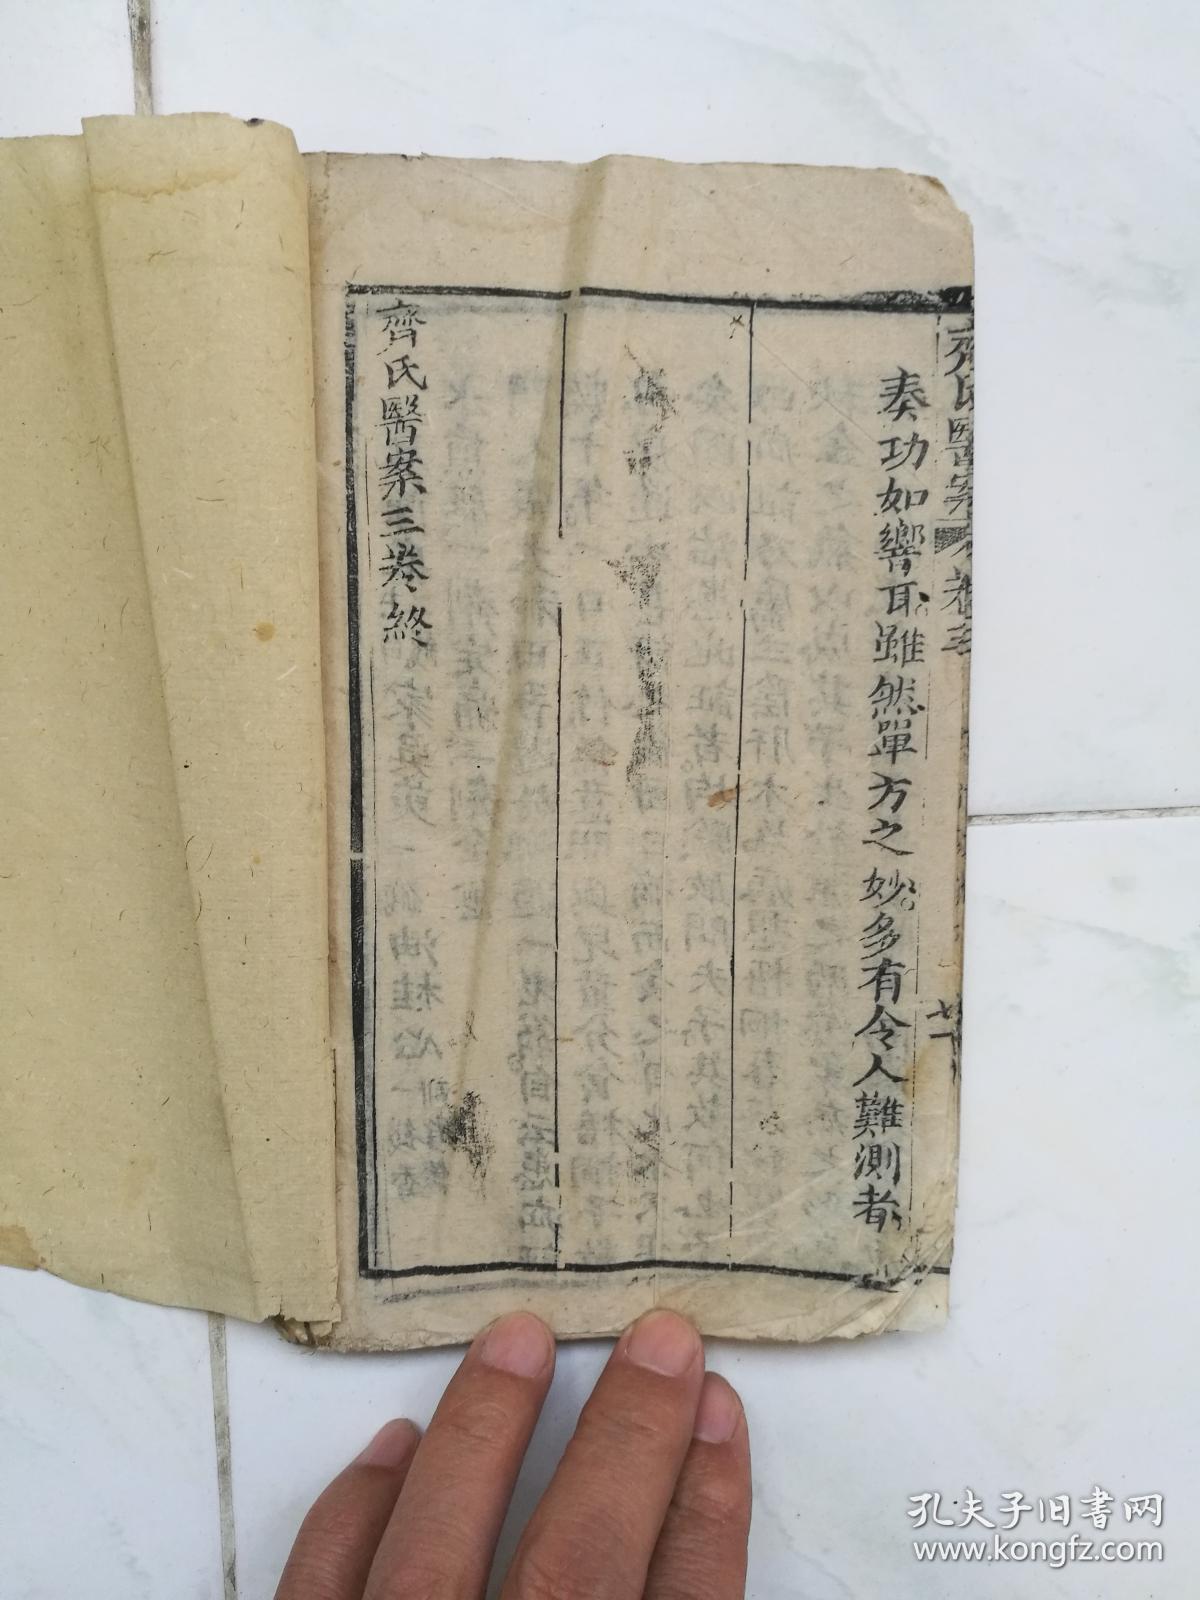 齊氏醫案 卷三
奏功如響耳雖然單方之妙多有令人難測者
齊氏醫案三卷終
孔夫子旧書网
www.kongfz.com